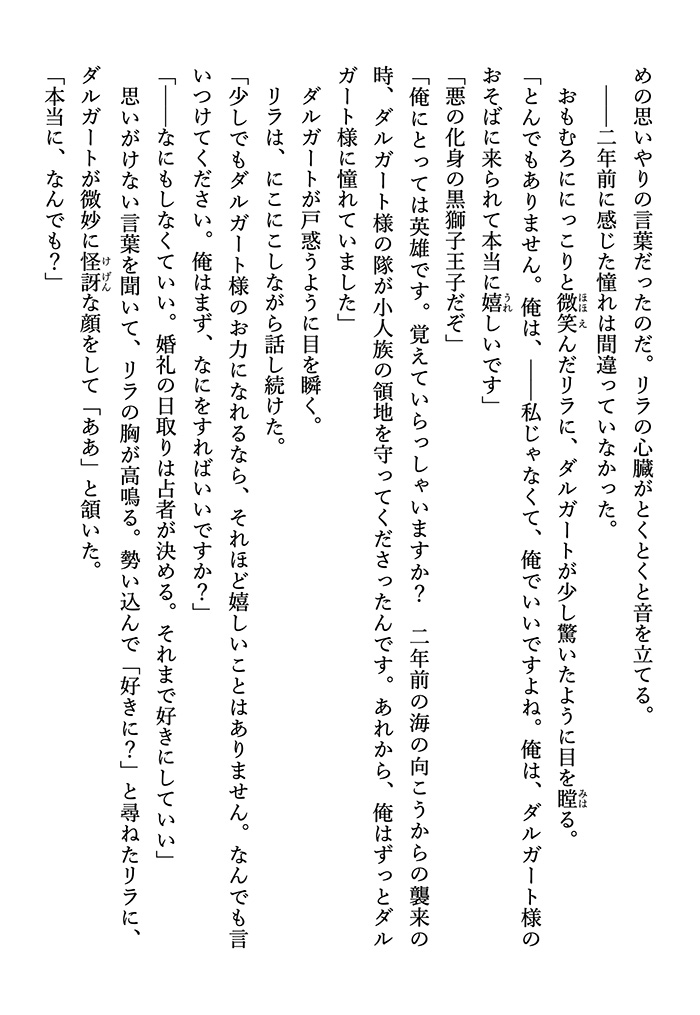 めの思いやりの言葉だったのだ。リラの心臓がとくとくと音を立てる。
――二年前に感じた憧れは間違っていなかった。
おもむろににっこりと微笑んだリラに、ダルガートが少し驚いたように目を瞠る。
「とんでもありません。俺は、――私じゃなくて、俺でいいですよね。俺は、ダルガート様の
おそばに来られて本当に嬉しいです」
「悪の化身の黒獅子王子だぞ」
「俺にとっては英雄です。覚えていらっしゃいますか?　二年前の海の向こうからの襲来の
時、ダルガート様の隊が小人族の領地を守ってくださったんです。あれから、俺はずっとダル
ガート様に憧れていました」
ダルガートが戸惑うように目を瞬く。
リラは、にこにこしながら話し続けた。
「少しでもダルガート様のお力になれるなら、それほど嬉しいことはありません。なんでも言
いつけてください。俺はまず、なにをすればいいですか?」
「――なにもしなくていい。婚礼の日取りは占者が決める。それまで好きにしていい」
思いがけない言葉を聞いて、リラの胸が高鳴る。勢い込んで「好きに?」と尋ねたリラに、
ダルガートが微妙に怪訝な顔をして「ああ」と頷いた。
「本当に、なんでも?」